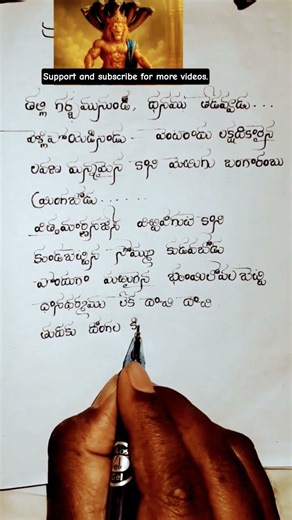 Support and subscribe for more videos.
తల్లి గర్భమునుండి, ధనము తేడెవ్వడు....
వెళ్ళిపోయెడినాడు వెంటరాదు లక్షాధికారైన
లవణ మన్నమెకాని మెఱుగు బంగారంబు
మ్రింగబోడు........
విత్తమార్జనజేసి విర్రవీగుటె కాని
కూడబెట్టిన సొమ్ము కుడువబోడు
పొందుగా మరుగైన భూమిలోపల పెట్టి
దానధర్మము లేక దాచి దాచి
తుదకు దొంగల కి